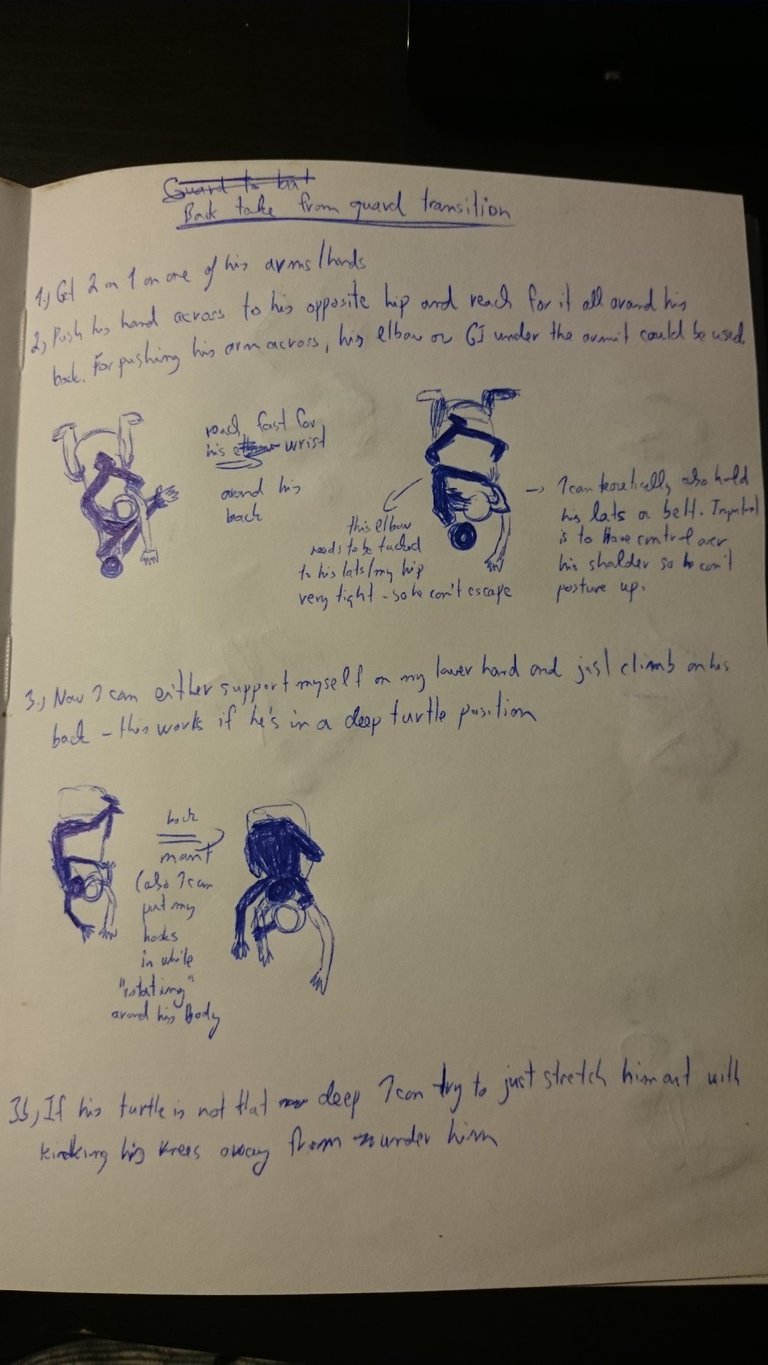 Back take from guard transition
1.) Get 2 on 1 on one of his arms/hands
2.) Push his hand across to his opposite hip and reach for it all around his
back. For pushing his arm across, his elbow or GI under the armit could be used
reach fast for
his wrist
around his
back
this elbow
needs to be tucked
to his lats/my hip
very tight - so he can't escape
→ I can teoretically also hold
his lats or belt. Importat
is to have control over
his shoulder so he can't
posture up.
3.) Now I can either support myself on my lower hand and just climb on his
back - this works if he's in a deep turtle position
back
mant
(also I can
put my
hooks
in while
"rotating"
around his Body
3b) If his turtle is not that deep I can try to just stretch him out with
kicking his knees away from under him